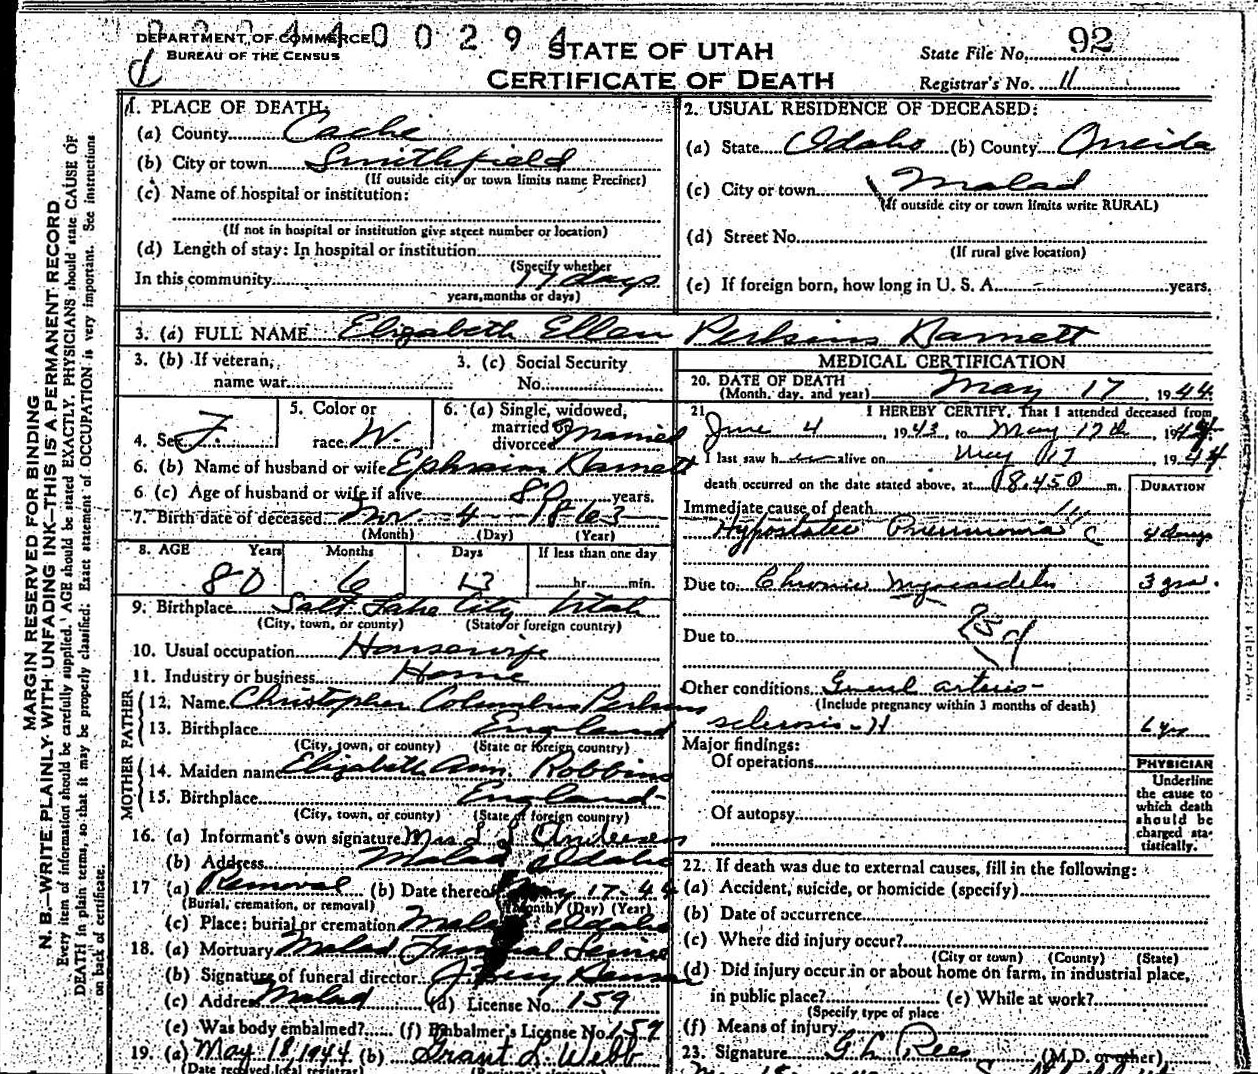 2 2 2 4 4 0 0 2 9 4
DEPARTMENT OF COMMERCE
BUREAU OF THE CENSUS
STATE OF UTAH
CERTIFICATE OF DEATH
State File No. 92
Registrar's No. 11
MARGIN RESERVED FOR BINDING
N. B.—WRITE PLAINLY WITH UNFADING INK—THIS IS A PERMANENT RECORD.
Every item of information should be carefully supplied. AGE should be stated EXACTLY. PHYSICIANS should state CAUSE OF
DEATH in plain terms, so that it may be properly classified. Exact statement of OCCUPATION is very important. See instructions
on back of certificate.
1. PLACE OF DEATH:
(a) County Cache
(b) City or town Smithfield
(If outside city or town limits name Precinct)
(c) Name of hospital or institution:
(If not in hospital or institution give street number or location)
(d) Length of stay: In hospital or institution
(Specify whether
In this community 17 days
years, months or days)
2. USUAL RESIDENCE OF DECEASED:
(a) State Idaho (b) County Oneida
(c) City or town Malad
(If outside city or town limits write RURAL)
(d) Street No.
(If rural give location)
(e) If foreign born, how long in U. S. A. - years.
3. (a) FULL NAME Elizabeth Ellen Perkins Barnett
3. (b) If veteran,
name war
3. (c) Social Security
No.
4. Sex F.
5. Color or
race W.
6. (a) Single, widowed,
married or
divorced Married
6. (b) Name of husband or wife Ephraim Barnett
6 (c) Age of husband or wife if alive 80 years.
7. Birth date of deceased Nov - 4 - 1863
(Month) (Day) (Year)
8. AGE Years Months Days If less than one day
80 6 13 hr. min.
9. Birthplace Salt Lake City Utah
(City, town, or county) (State or foreign country)
10. Usual occupation Housewife
11. Industry or business Home
FATHER
12. Name Christopher Columbus Perkins
13. Birthplace England
(City, town, or county) (State or foreign country)
MOTHER
14. Maiden name Elizabeth Ann Robbins
15. Birthplace England-
(City, town, or county) (State of foreign country)
16. (a) Informant's own signature Mrs Andersen
(b) Address Malad Idaho
17 (a) Removal (b) Date thereof May 17-44
(Burial, cremation, or removal) (Month) (Day) (Year)
(c) Place: burial or cremation Malad Idaho
18. (a) Mortuary Malad Funeral
(b) Signature of funeral director
(c) Address Malad (d) License No. 159
(e) Was body embalmed? (f) Embalmer's License No. 159
19. (a) May 18, 1944 (b) Grant L. Webb
(Date received local registrar)
MEDICAL CERTIFICATION
20. DATE OF DEATH
(Month, day, and year) May 17, 1944
21 I HEREBY CERTIFY, That I attended deceased from
June 4, 1943, to May 17th, 1944
I last saw her alive on May 17, 1944
death occurred on the date stated above, at 8:45 P m.
DURATION
Immediate cause of death
Hypostatic Pneumonia 4 days
Due to Chronic Myocarditis 3 yrs.
Due to
Other conditions General arterio-
(Include pregnancy within 3 months of death)
sclerosis - H 6 yrs
Major findings:
Of operations
Of autopsy
PHYSICIAN
Underline
the cause to
which death
should be
charged sta-
tistically.
22. If death was due to external causes, fill in the following:
(a) Accident, suicide, or homicide (specify)
(b) Date of occurrence
(c) Where did injury occur?
(City or town) (County) (State)
(d) Did injury occur in or about home on farm, in industrial place,
in public place? (e) While at work?
(Specify type of place
(f) Means of injury
23. Signature G L Rees (M.D. or other)